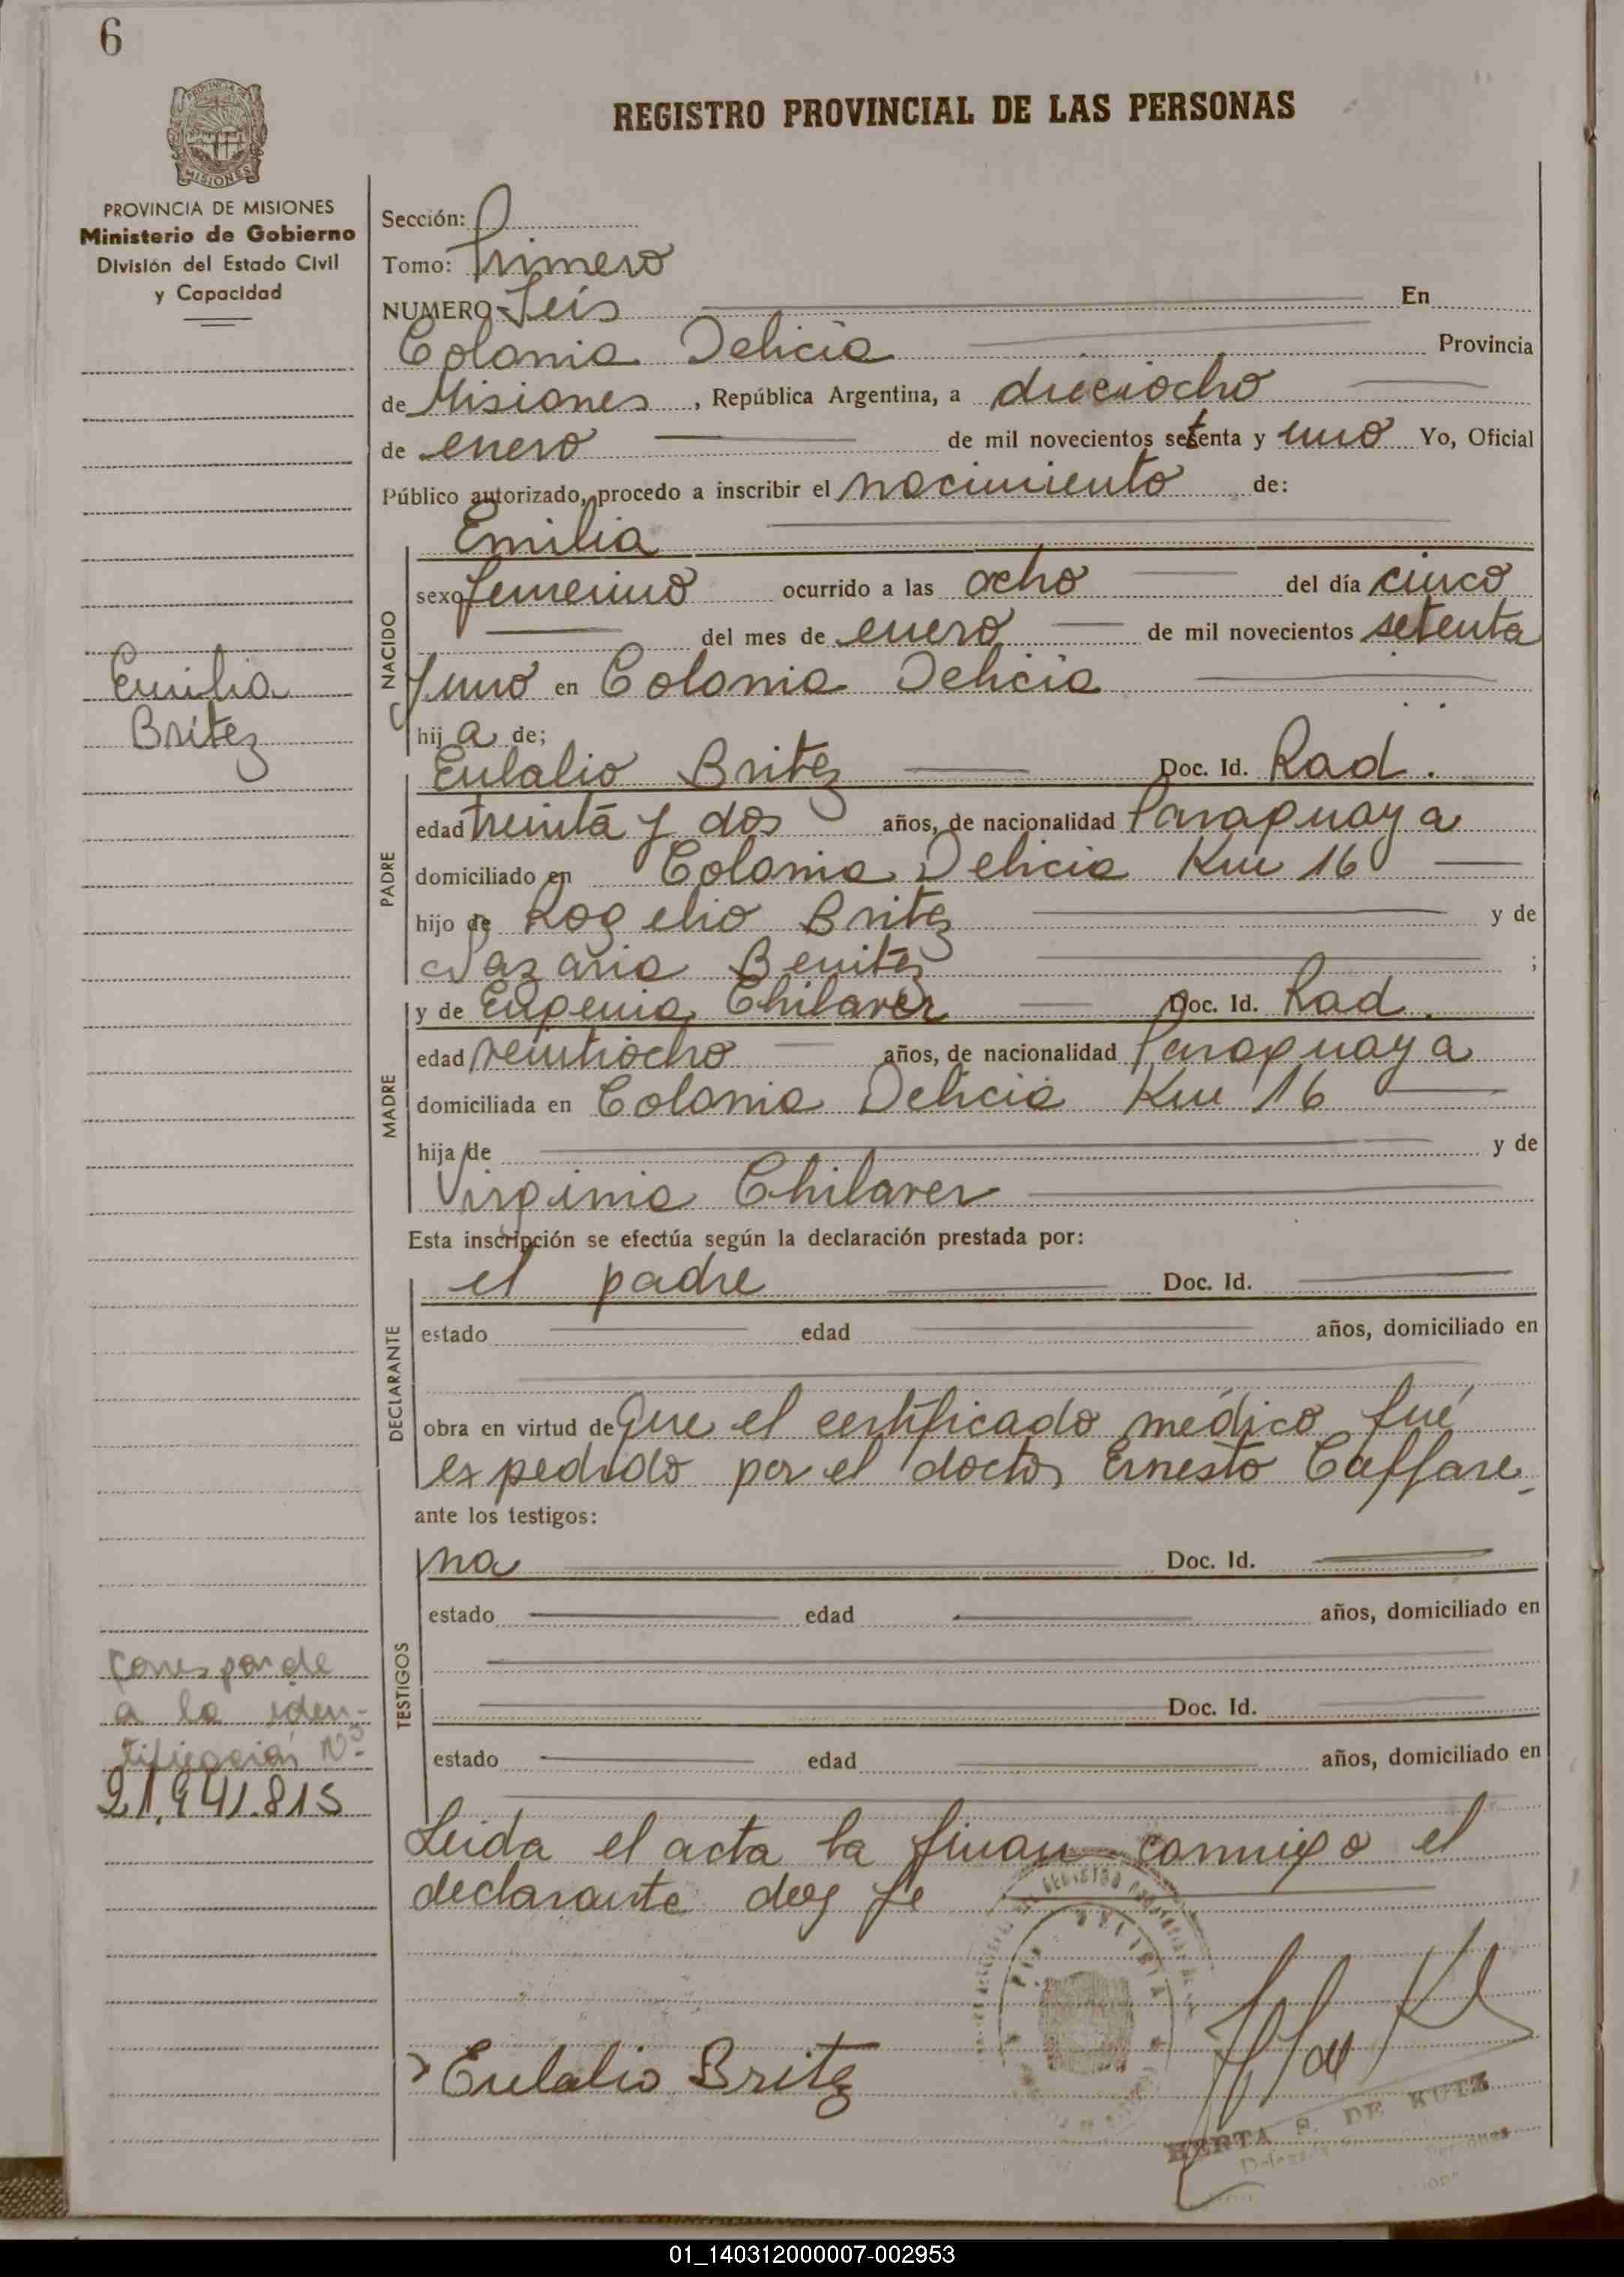 6
REGISTRO PROVINCIAL DE LAS PERSONAS
MISIONES
PROVINCIA DE MISIONES
Ministerio de Gobierno
División del Estado Civil
y Capacidad
Sección:
Tomo: Primero
NUMERO Seis En
Colonia Delicia Provincia
de Misiones, República Argentina, a dieciocho
de enero de mil novecientos setenta y uno Yo, Oficial
Público autorizado, procedo a inscribir el nacimiento de:
Emilia
NACIDO
sexo femenino ocurrido a las ocho del día cinco
del mes de enero de mil novecientos setenta
y uno en Colonia Delicia
hija de;
Emilia
Britez
PADRE
Eulalio Britez Doc. Id. Rad.
edad treinta y dos años, de nacionalidad Paraguaya
domiciliado en Colonia Delicia Km 16
hijo de Rogelio Britez y de
Nazaria Benitez ;
MADRE
y de Eugenia Chilaver Doc. Id. Rad.
edad veintiocho años, de nacionalidad Paraguaya
domiciliada en Colonia Delicia Km 16
hija de y de
Virginia Chilaver
Esta inscripción se efectúa según la declaración prestada por:
DECLARANTE
el padre Doc. Id.
estado edad años, domiciliado en
obra en virtud de que el certificado médico fué
expedido por el doctor Ernesto Caffare-
ante los testigos:
TESTIGOS
na Doc. Id.
estado edad años, domiciliado en
Doc. Id.
estado edad años, domiciliado en
Corresponde
a la iden-
tificación Nº
21.941.815
Leida el acta la firman conmigo el
declarante doy fe
Eulalio Britez
HERTA S. DE KUTZ
01_140312000007-002953